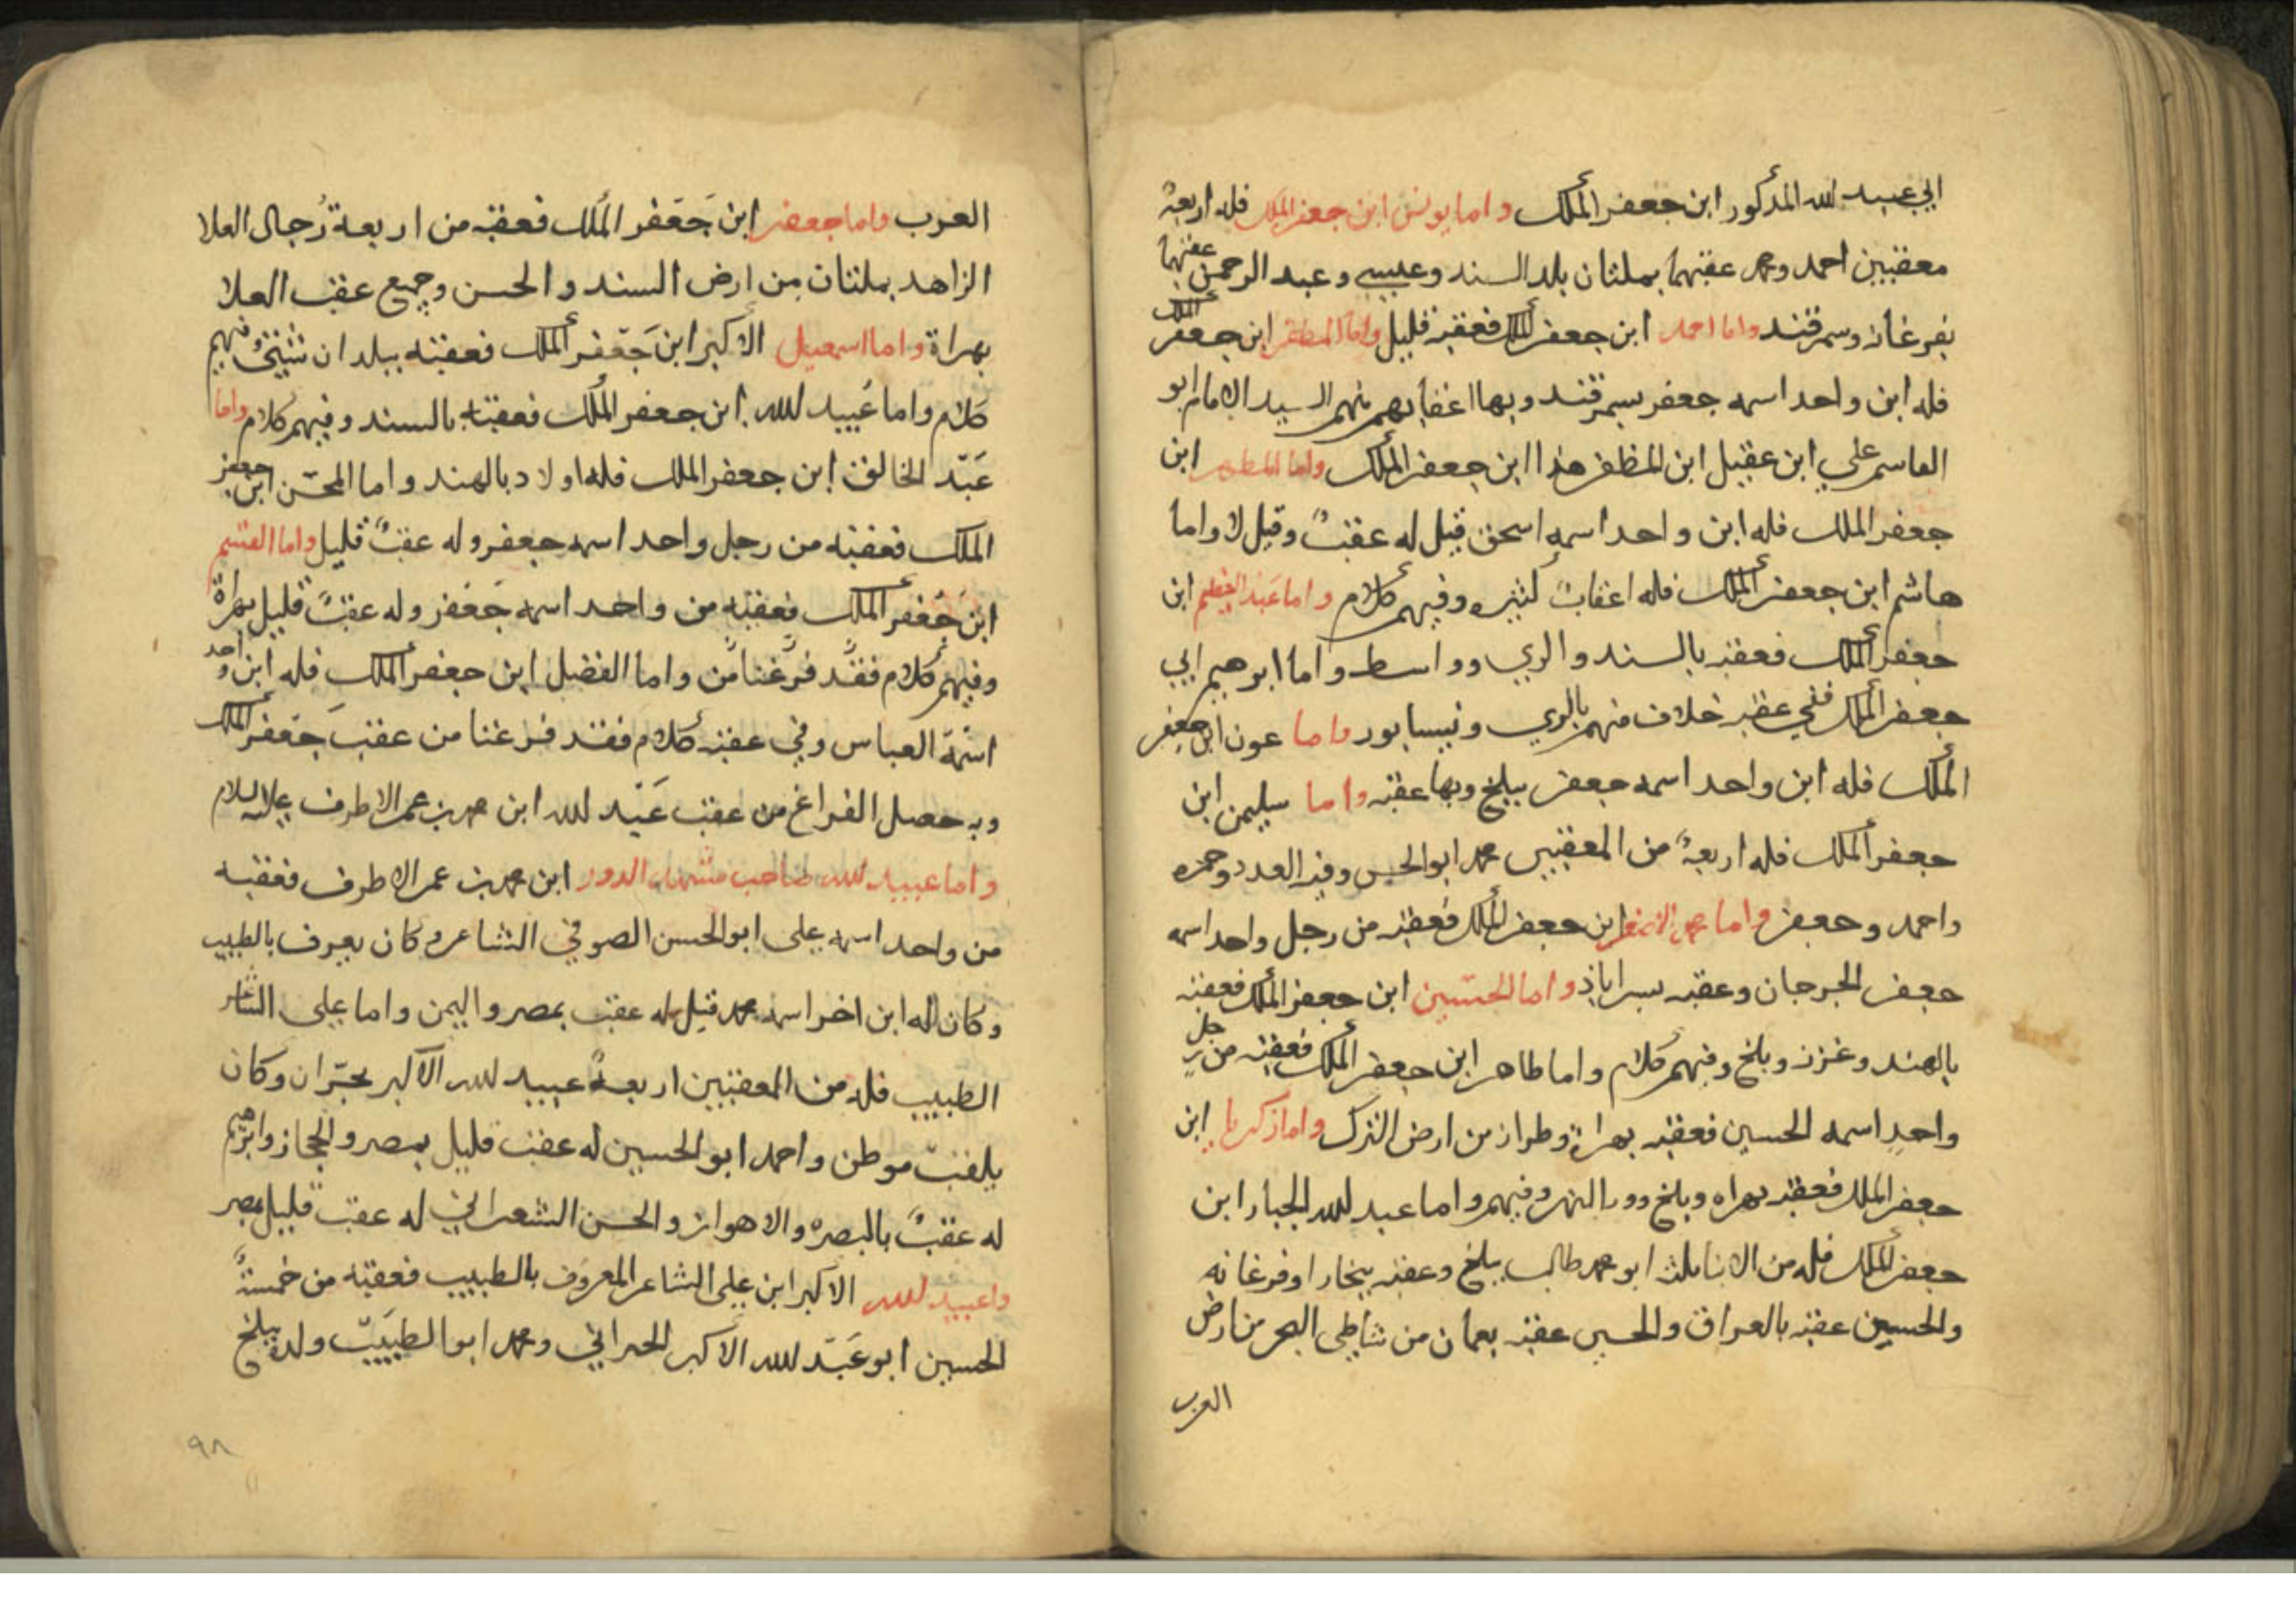 ابي عبيد الله المذكور ابن جعفر الملك واما يونس ابن جعفر الملك فله اربعة
معقبين احمد ومحمد عقبهما بملتان بلد السند وعيسى وعبد الرحمن عقبهما
بفرغانه وسمرقند واما احمد ابن جعفر الملك فعقبه قليل واما المظفر ابن جعفر الملك
فله ابن واحد اسمه جعفر سمرقند وبها اعقابهم منهم السيد الامام ابو
القاسم علي ابن عقيل ابن المظفر هذا ابن جعفر الملك واما المطهر ابن
جعفر الملك فله ابن واحد اسمه اسحق قيل له عقبٌ وقيل لا واما
هاشم ابن جعفر الملك فله اعقابٌ كثيره وفيهم كلام واما عبد العظيم ابن
جعفر الملك فعقبه بالسند والري وواسط واما ابرهيم ابي
جعفر الملك ففي عقبه خلاف منهم بالري ونيسابور واما عون ابن جعفر
الملك فله ابن واحد اسمه جعفر ببلخ وبها عقبه واما سليمن ابن
جعفر الملك فله اربعةٌ من المعقبين محمد ابو الحسن وفيه العدد وحمزه
واحمد وجعفر واما عمر الاصغر ابن جعفر الملك فعقبه من رجل واحد اسمه
جعفر الجرجان وعقبه بسراباذ واما الحسين ابن جعفر الملك فعقبه
بالهند وغزنه وبلخ وفيهم كلام واما طاهر ابن جعفر الملك فعقبه من رجلٍ
واحدٍ اسمه الحسين فعقبه بهراة وطراز من ارض الترك واما زكريا ابن
جعفر الملك فعقبه بهراه وبلخ وورا النهر وفيهم واما عبد لله الجبار ابن
جعفر الملك فله من الابنا ثلثه ابو محمد طالب ببلخ وعقبه ببخارا وفرغانه
والحسين عقبه بالعراق والحسن عقبه بعمان من شاطى البحر من ارض
العرب
العرب واما جعفر ابن جَعفر الملك فعقبه من اربعة رُجال العلا
الزاهد بملتان من ارض السند والحسن وجميع عقب العلا
بهراة واما اسمعيل الاكبر ابن جَعفر الملك فعقبه ببلدان شتىٰ فيهم
كلام واما عُبيد لله ابن جعفر الملك فعقبه بالسند وفيهم كلام واما
عَبد الخالق ابن جعفر الملك فله اولاد بالهند واما المحسّن ابن جعفر
الملك فعقبه من رجل واحد اسمه جعفر وله عقبٌ قليل واما القسم
ابن جَعفر الملك فعقبه من واحد اسمه جَعفر وله عقبٌ قليل بهراة
وفيهم كلام فقد فرغنا من واما الفضل ابن جعفر الملك فله ابن واحد
اسمه العباس وفي عقبه كلام فقد فرغنا من عقب جَعفر الملك
وبه حصل الفراغ من عقب عَبد لله ابن محمد بن عمر الاطرف عليه السلام
واما عبيد لله صاحب مشهد الدور ابن محمد بن عمر الاطرف فعقبه
من واحد اسمه علي ابو الحسن الصوفي الشاعر وكان يعرف بالطبيب
وكان له ابن اخر اسمه محمد قيل له عقب بمصر واليمن واما علي الشاعر
الطبيب فله من المعقبين اربعةٌ عبيد لله الاكبر بحرّان وكان
يلقب موطن واحمد ابو الحسين له عقب قليل بمصر والحجاز وابرهيم
له عقبٌ بالبصره والاهواز والحسن الشعراني له عقب قليل بمصر
واعبيد لله الاكبر ابن علي الشاعر المعروف بالطبيب فعقبه من خمسةٌ
الحسين ابو عَبد لله الاكبر الحراني ومحمد ابو الطيب ولده ببلخ
٩٨